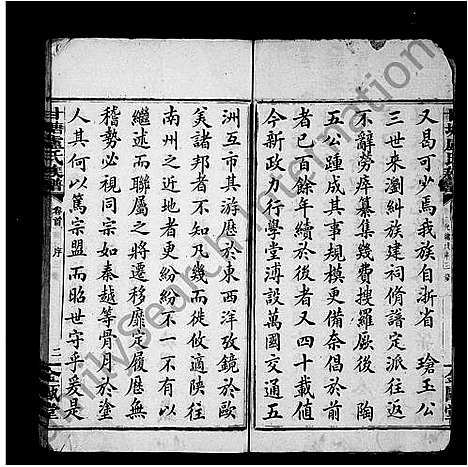 又曷可少焉我族自浙省　瑲玉公
三世來瀏糾族建祠脩譜定派往返
不辭勞瘁纂集幾費搜羅厥後　陶
五公踵成其事規模更備奈倡脩至今
者已百餘年續於後者又四十載值
今新政力行學堂溥設萬國交通五
洲互市其游歷於東西洋攷鏡於歐
美諸邦者不知凡幾而徙攸適陝往
南州之近地者更紛紛不一不有以
繼述而聯屬之將遷移靡定履歷無
稽勢必視同宗如秦越等骨月於塗
人其何以篤宗盟而昭世守乎爰是
甘塘盧氏族譜
卷首
序
二